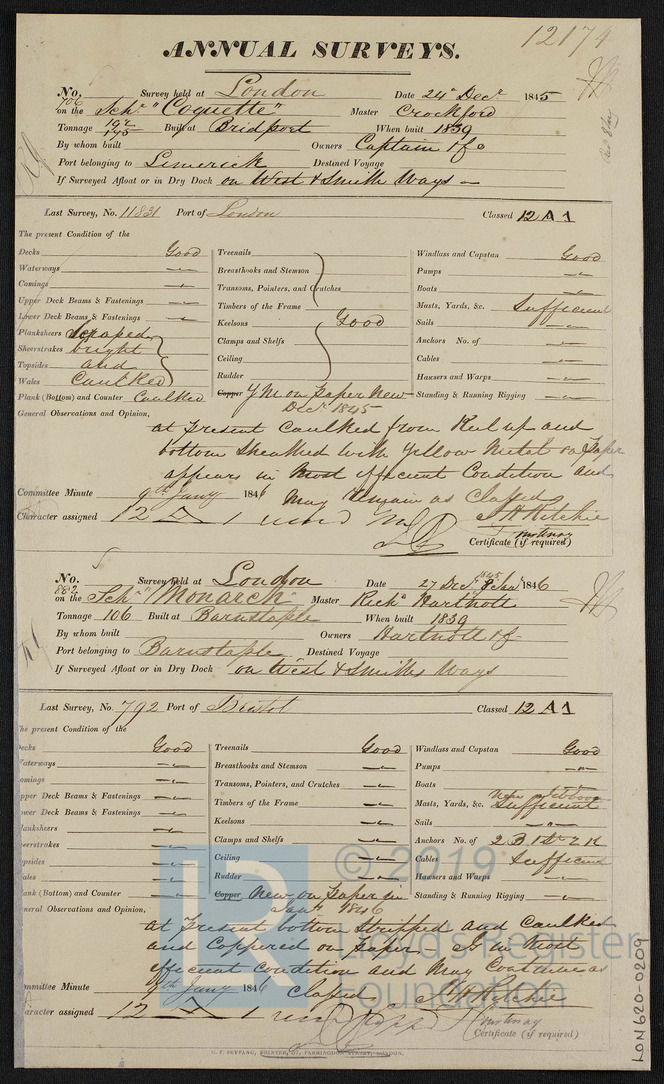 12174
ANNUAL SURVEYS.
No. 706 Survey held at London Date 24th Decr 1845
on the Schr "Coquette" Master Crockford
Tonnage 192/145 Built at Bridport When built 1839
By whom built Owners Captain & Co
Port belonging to Limerick Destined Voyage
If Surveyed Afloat or in Dry Dock on West & Smith Ways
Last Survey, No. 11831 Port of London Classed 12 A 1
The present Condition of the
Decks Good Treenails Windlass and Capstan Good
Waterways " Breasthooks and Stemson Pumps "
Comings " Transoms, Pointers, and Crutches Boats "
Upper Deck Beams & Fastenings " Timbers of the Frame Masts, Yards, &c. Sufficient
Lower Deck Beams & Fastenings " Keelsons Good Sails "
Planksheers Scraped Clamps and Shelfs Anchors No. of "
Sheerstrakes bright Ceiling Cables "
Topsides and Rudder Hawsers and Warps "
Wales Caulked Copper Y M on Paper New Standing & Running Rigging "
Plank (Bottom) and Counter Caulked Decr 1845
General Observations and Opinion,
at Present Caulked from Keel up and
bottom Sheathed with Yellow Metal on Paper
appears in Most efficient Condition and
Committee Minute 9th Jany 1846 May Remain as Classed
Character assigned 12 A 1 J H Ritchie
Certificate (if required)
No. 882 Survey held at London Date 27 Decr 1845 8 Jany 1846
on the Schr "Monarch" Master Richd Hartnoll
Tonnage 106 Built at Barnstaple When built 1839
By whom built Owners Hartnoll & Co
Port belonging to Barnstaple Destined Voyage
If Surveyed Afloat or in Dry Dock on West & Smiths Ways
Last Survey, No. 792 Port of Bristol Classed 12 A 1
The present Condition of the
Decks Good Treenails Good Windlass and Capstan Good
Waterways " Breasthooks and Stemson " Pumps "
Comings " Transoms, Pointers, and Crutches " Boats
Upper Deck Beams & Fastenings " Timbers of the Frame " Masts, Yards, &c. Sufficient
Lower Deck Beams & Fastenings " Keelsons " Sails "
Planksheers " Clamps and Shelfs " Anchors No. of 2 B 1 St 2 K
Sheerstrakes " Ceiling " Cables Sufficient
Topsides " Rudder " Hawsers and Warps "
Wales " Copper New on Paper in Standing & Running Rigging "
Plank (Bottom) and Counter " Jany 1846
General Observations and Opinion,
at Present bottom Stripped and Caulked
and Coppered on Paper is in Most
efficient Condition and May Continue as
Committee Minute 9th Jany 1846 Classed J H Ritchie
Character assigned 12 A 1
Certificate (if required)
C. F. SEYFANG, PRINTER, 57, FARRINGDON STREET, LONDON.
LON620-0209
LR
© 2019
Lloyd's Register
Foundation